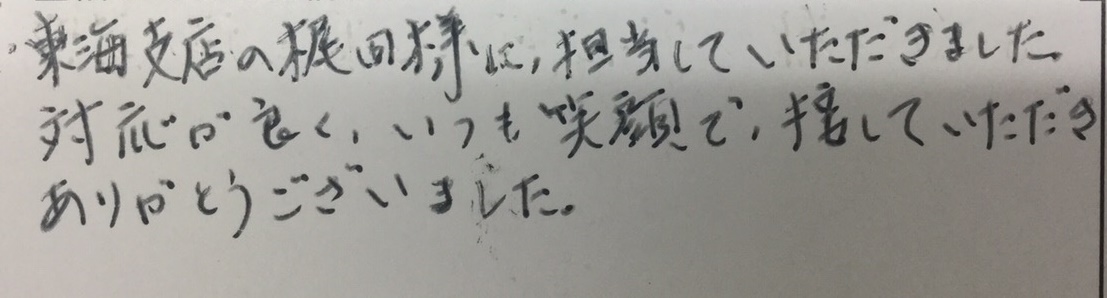 東海支店の梶田様に,担当していただきました。
対応が良く,いつも笑顔で,接していただき
ありがとうございました。